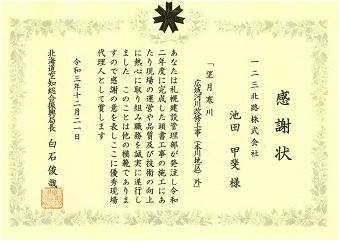 感謝状
一二三北路株式会社
池田 甲斐 様
「望月寒川
広域河川改修工事(末川地区)外」
あなたは札幌建設管理部が発注し令和
二年度に完成した頭書工事の施工にあ
たり現場の運営や品質及び技術の向上
に熱心に取り組み職務を誠実に遂行し
ましたこのことは他の模範でありま
すので感謝の意を表しここに優秀現場
代理人として賞します
令和三年十二月二一日
北海道空知総合振興局長 白石俊哉